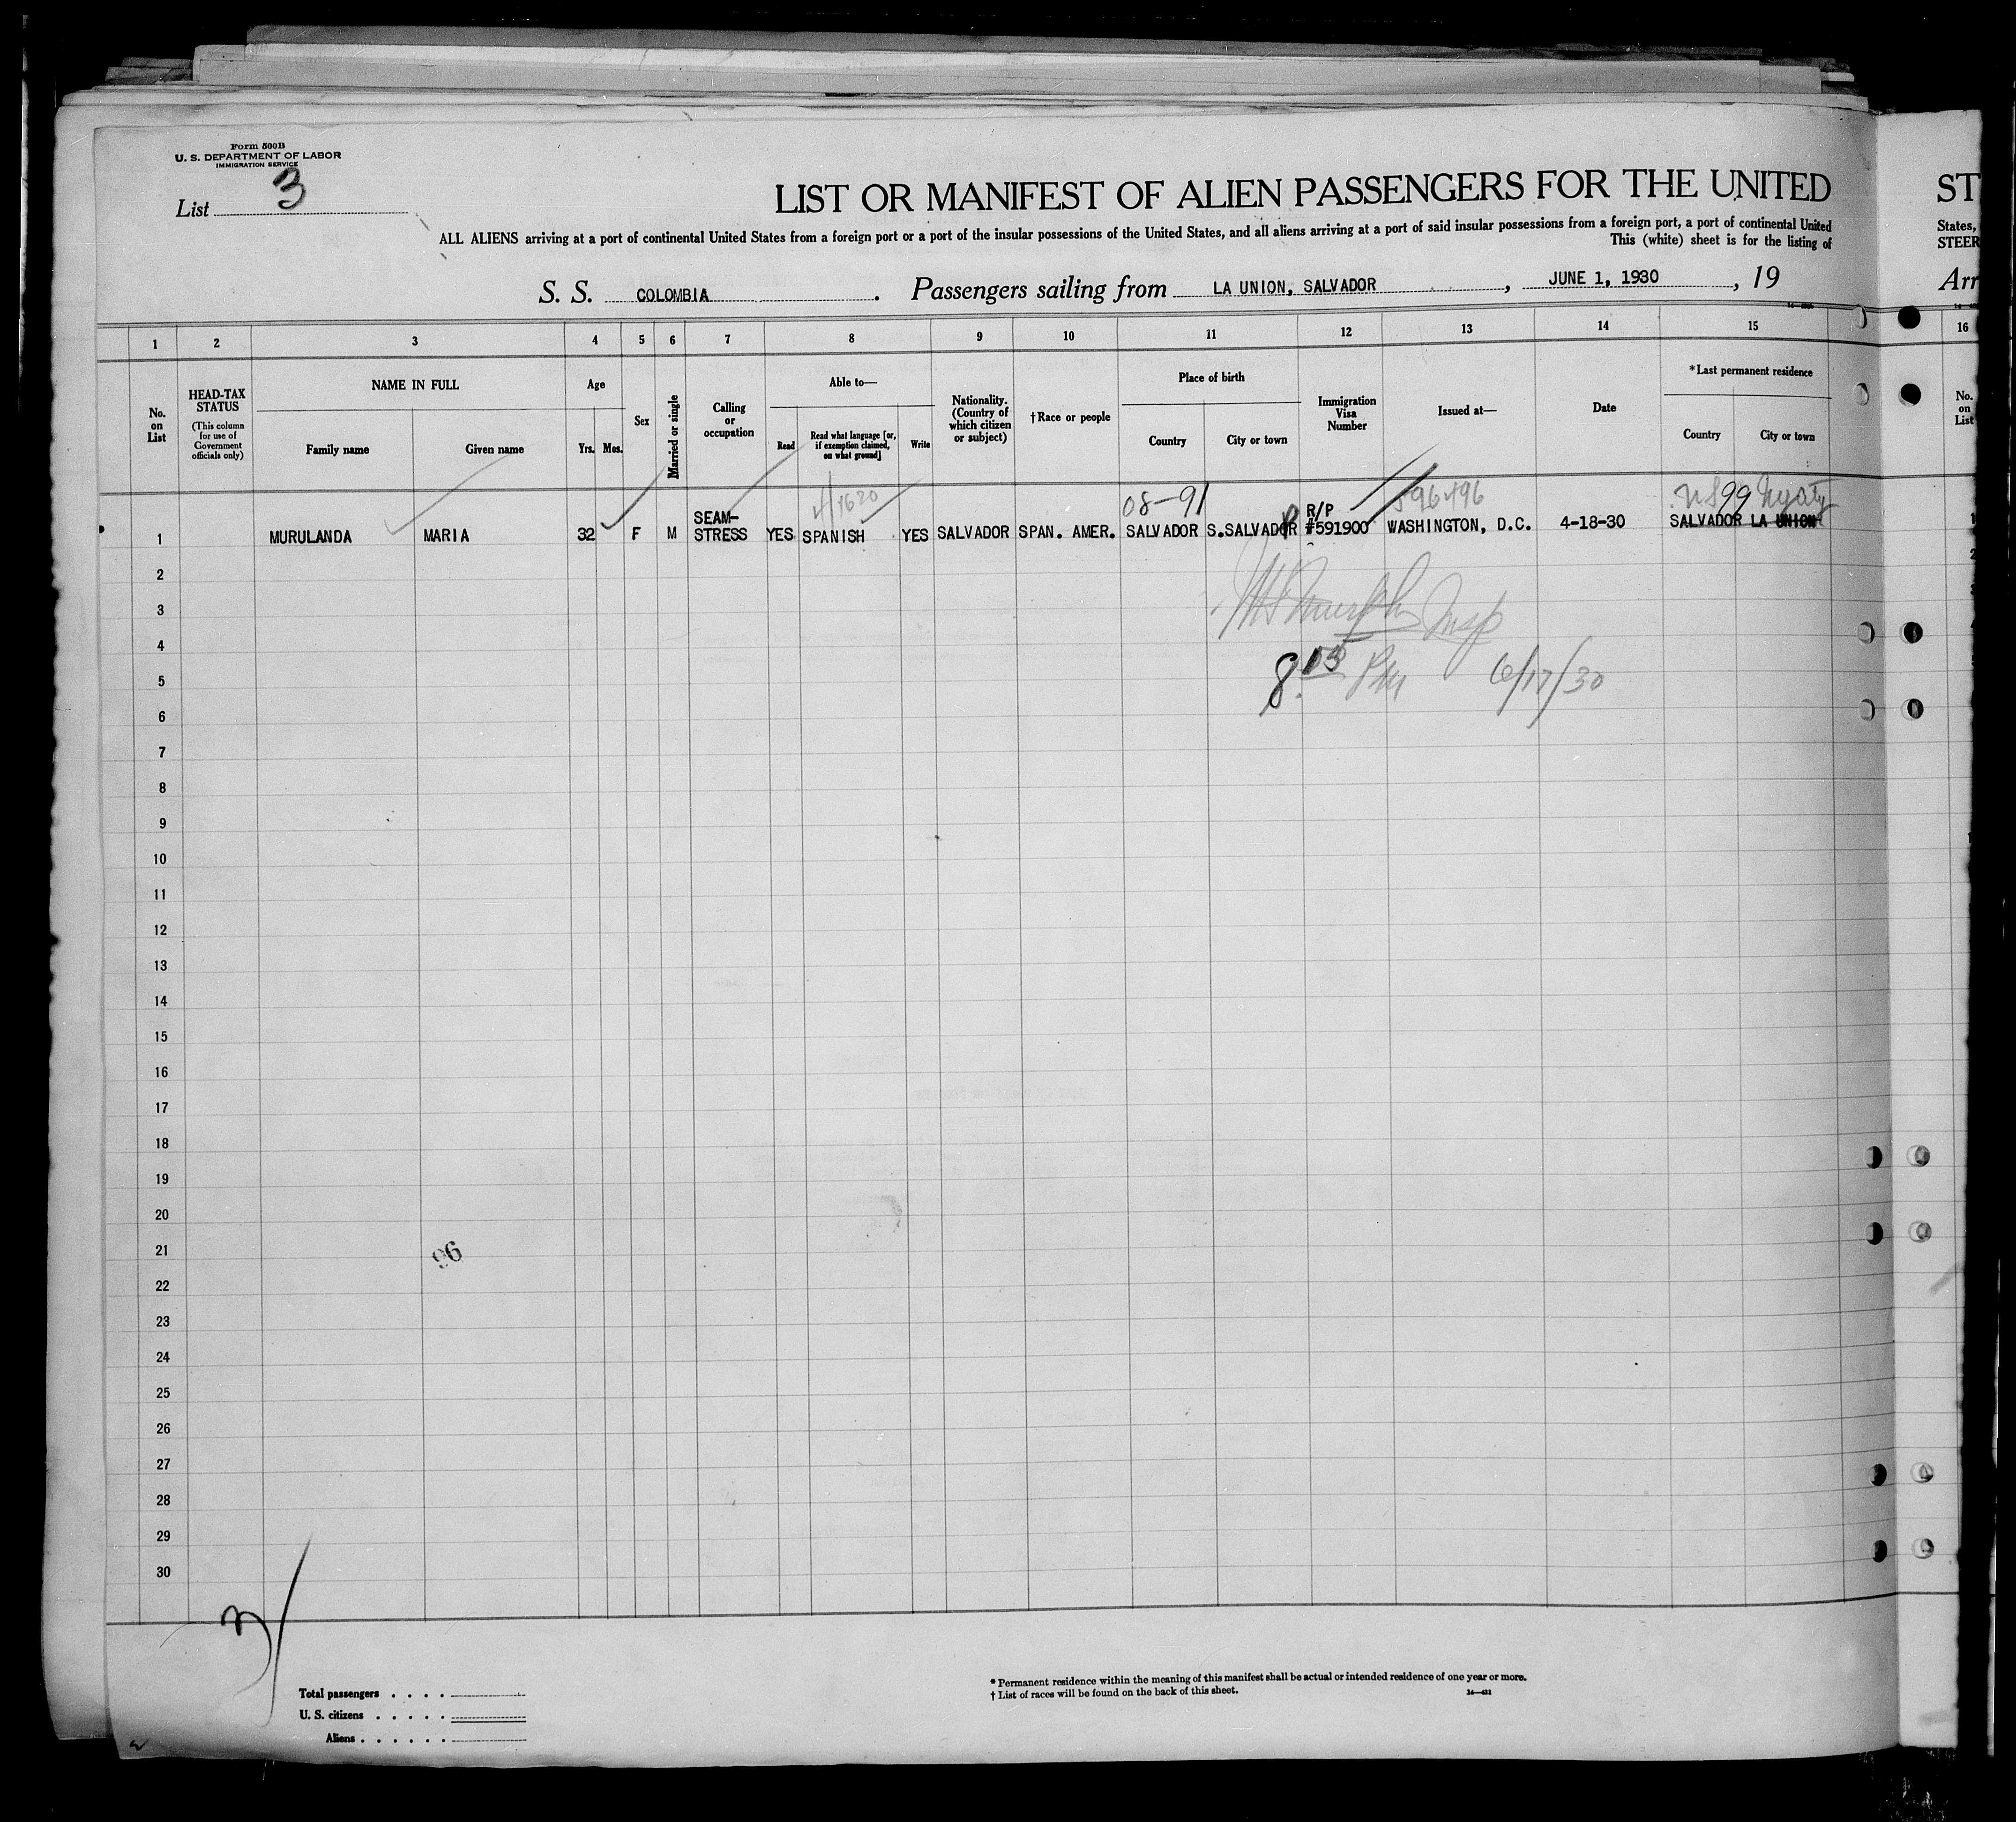 Form 500B
U. S. DEPARTMENT OF LABOR
IMMIGRATION SERVICE
List 3
LIST OR MANIFEST OF ALIEN PASSENGERS FOR THE UNITED
ST
ALL ALIENS arriving at a port of continental United States from a foreign port or a port of the insular possessions of the United States, and all aliens arriving at a port of said insular possessions from a foreign port, a port of continental United
States,
This (white) sheet is for the listing of
STEER
S. S. COLOMBIA. Passengers sailing from LA UNION, SALVADOR, JUNE 1, 1930, 19
Arr
1 2 3 4 5 6 7 8 9 10 11 12 13 14 15 16
No. on List
HEAD-TAX STATUS (This column for use of Government officials only)
NAME IN FULL
Family name Given name
Age
Yrs. Mos.
Sex
Married or single
Calling or occupation
Able to—
Read
Read what language [or, if exemption claimed, on what ground]
Write
Nationality. (Country of which citizen or subject)
†Race or people
Place of birth
Country City or town
Immigration Visa Number
Issued at—
Date
*Last permanent residence
Country City or town
No. on List
08-91 596496 99
1 MURULANDA MARIA 32 F M SEAM-STRESS YES SPANISH YES SALVADOR SPAN. AMER. SALVADOR S.SALVADOR R/P #591900 WASHINGTON, D.C. 4-18-30 SALVADOR LA UNION
2
3
4
5
6
7
8
9
10
11
12
13
14
15
16
17
18
19
20
21
22
23
24
25
26
27
28
29
30
Murphy Insp
8 15 PM 6/17/30
96
3
Total passengers
U. S. citizens
Aliens
* Permanent residence within the meaning of this manifest shall be actual or intended residence of one year or more.
† List of races will be found on the back of this sheet.